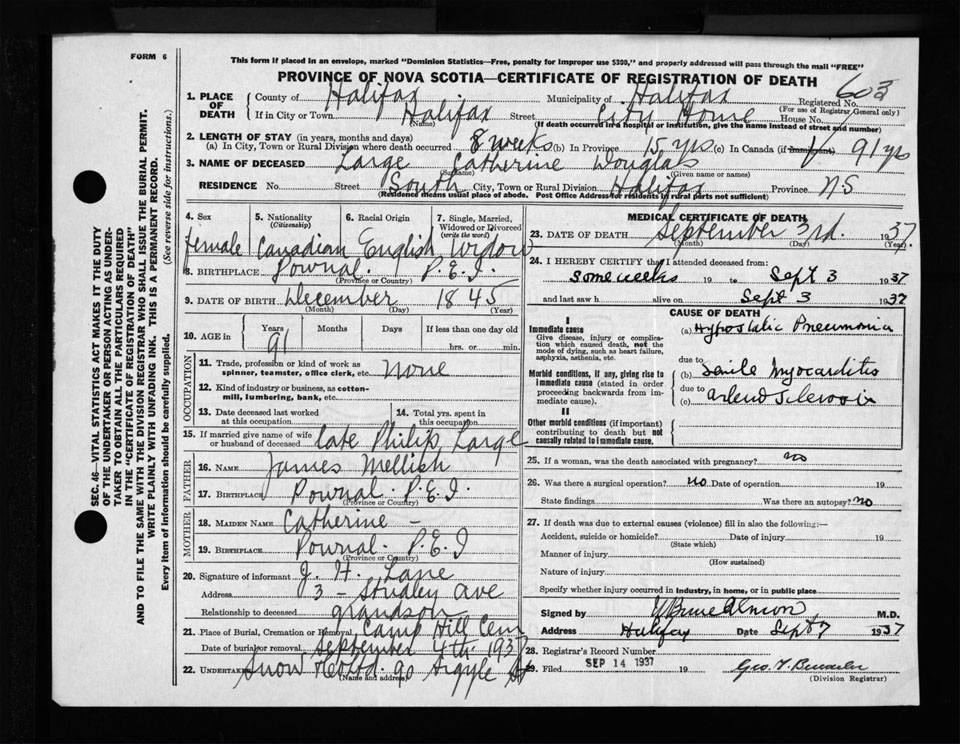 FORM 6
This form if placed in an envelope, marked "Dominion Statistics—Free, penalty for improper use $300," and properly addressed will pass through the mail "FREE"
PROVINCE OF NOVA SCOTIA—CERTIFICATE OF REGISTRATION OF DEATH
603
1. PLACE OF DEATH
County of Halifax Municipality of Halifax Registered No.
(For use of Registrar General only)
If in City or Town Halifax Street City Home House No.
(Name) (If death occurred in a hospital or institution, give the name instead of street and number)
2. LENGTH OF STAY (in years, months and days)
(a) In City, Town or Rural Division where death occurred 8 weeks (b) In Province 15 yrs (c) In Canada (if immigrant) 91 yrs
3. NAME OF DECEASED Large Catherine Douglas
(Surname) (Given name or names)
RESIDENCE No. Street South City, Town or Rural Division Halifax Province N.S
(Residence means usual place of abode. Post Office Address for residents in rural parts not sufficient)
4. Sex 5. Nationality (Citizenship) 6. Racial Origin 7. Single, Married, Widowed or Divorced (write the word)
female Canadian English Widow
8. BIRTHPLACE Pownal. P.E.I.
(Province or Country)
9. DATE OF BIRTH December 1845
(Month) (Day) (Year)
10. AGE in Years Months Days If less than one day old
91 hrs. or min.
OCCUPATION
11. Trade, profession or kind of work as spinner, teamster, office clerk, etc. None
12. Kind of industry or business, as cotton-mill, lumbering, bank, etc.
13. Date deceased last worked at this occupation
14. Total yrs. spent in this occupation
15. If married give name of wife or husband of deceased late Philip Large
FATHER
16. NAME James Mellish
17. BIRTHPLACE Pownal. P.E.I.
(Province or Country)
MOTHER
18. MAIDEN NAME Catherine —
19. BIRTHPLACE Pownal. P.E.I
(Province or Country)
20. Signature of informant J. H. Lane
Address 3 - Studley Ave
Relationship to deceased grandson
21. Place of Burial, Cremation or Removal Camp Hill Cem
Date of burial or removal September 4th. 1937
22. Undertaker Snow Co Ltd. 90 Argyle St
(Name and address)
MEDICAL CERTIFICATE OF DEATH
23. DATE OF DEATH September 3rd. 1937
(Month) (Day) (Year)
24. I HEREBY CERTIFY that I attended deceased from:
some weeks 19 to Sept 3 1937
and last saw h alive on Sept 3 1937
CAUSE OF DEATH
I
Immediate cause
Give disease, injury or complication which caused death, not the mode of dying, such as heart failure, asphyxia, asthenia, etc.
(a) Hypostatic Pneumonia
due to
Morbid conditions, if any, giving rise to immediate cause (stated in order proceeding backwards from immediate cause).
(b) Senile Myocarditis
due to
(c)
II
Other morbid conditions (if important) contributing to death but not causally related to immediate cause.
25. If a woman, was the death associated with pregnancy? no
26. Was there a surgical operation? no Date of operation 19
State findings Was there an autopsy? no
27. If death was due to external causes (violence) fill in also the following:—
Accident, suicide or homicide? Date of injury 19
(State which)
Manner of injury
(How sustained)
Nature of injury
Specify whether injury occurred in industry, in home, or in public place
Signed by W Bruce Almon M.D.
Address Halifax Date Sept 7 1937
28. Registrar's Record Number
29. Filed SEP 14 1937 19
(Division Registrar)
SEC. 46—VITAL STATISTICS ACT MAKES IT THE DUTY
OF THE UNDERTAKER OR PERSON ACTING AS UNDER-
TAKER TO OBTAIN ALL THE PARTICULARS REQUIRED
IN THE "CERTIFICATE OF REGISTRATION OF DEATH"
AND TO FILE THE SAME WITH THE DIVISION REGISTRAR WHO SHALL ISSUE THE BURIAL PERMIT.
WRITE PLAINLY WITH UNFADING INK. THIS IS A PERMANENT RECORD.
Every item of information should be carefully supplied. (See reverse side for instructions.)